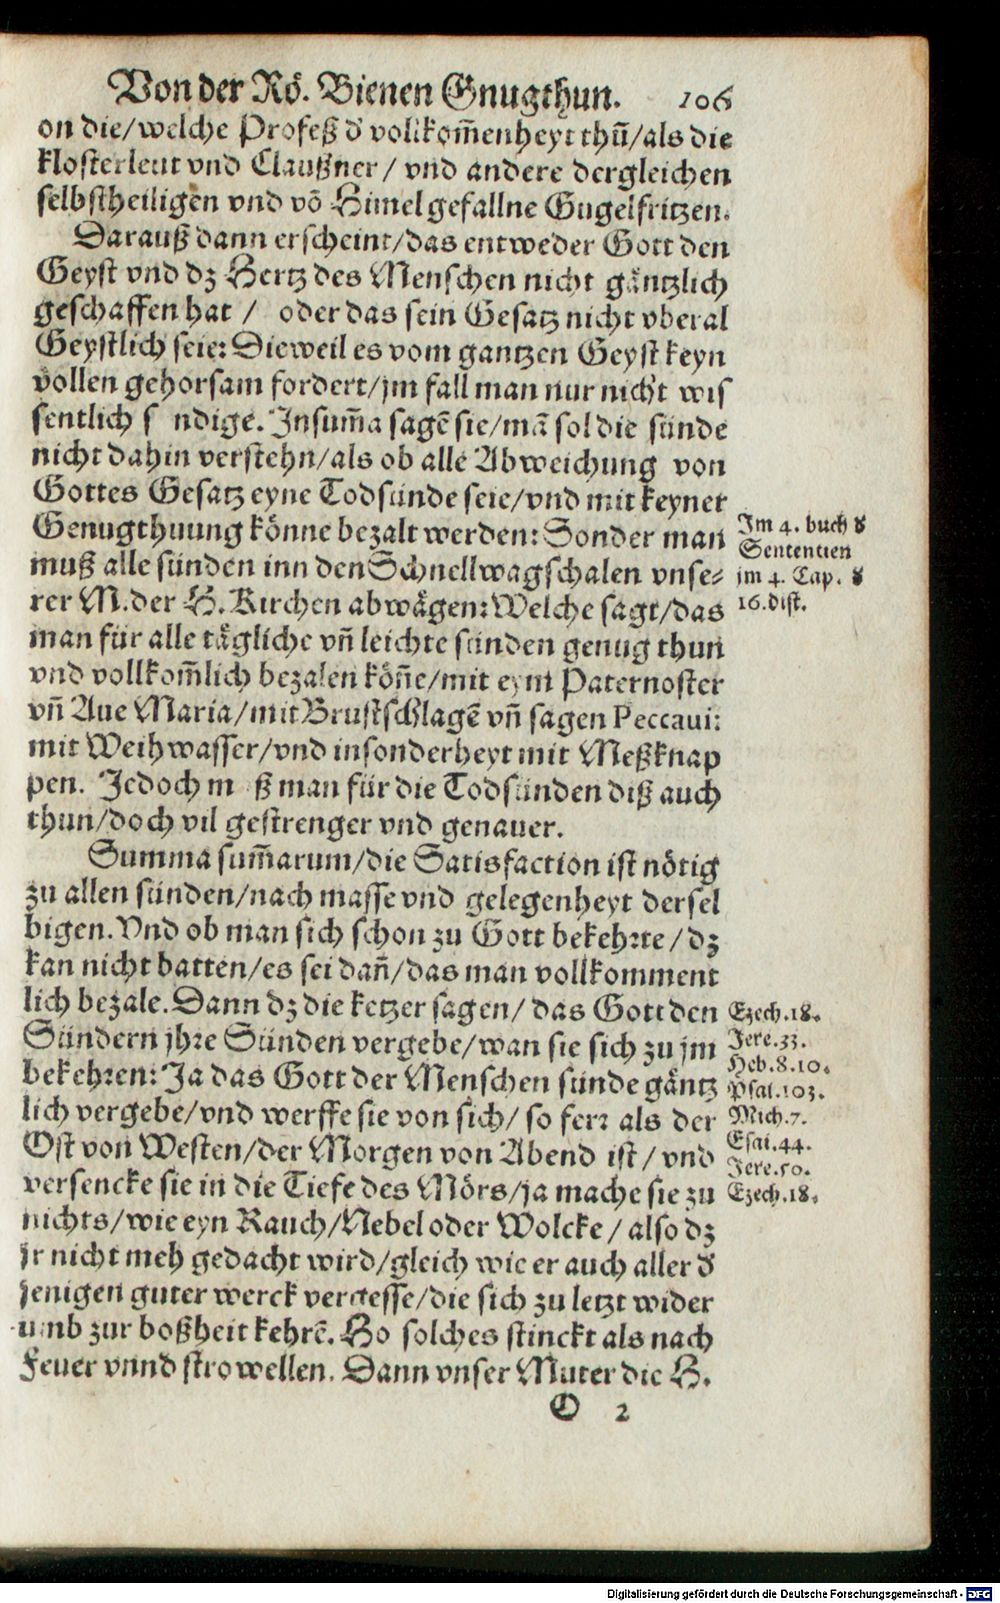 Von der Rö. Bienen Gnugthun. 106
on die/welche Profeß d' vollkom̃enheyt thũ/als die
klosterleut vnd Claußner/ vnd andere dergleichen
selbstheiligen vnd võ Himel gefallne Gugelfritzen.
Darauß dann erscheint/das entweder Gott den
Geyst vnd dz Hertz des Menschen nicht gäntzlich
geschaffen hat / oder das sein Gesatz nicht vberal
Geystlich seie: Dieweil es vom gantzen Geyst keyn
vollen gehorsam fordert/jm fall man nur nicht wis
sentlich s ndige. Insum̃a sagẽ sie/mã sol die sünde
nicht dahin verstehn/als ob alle Abweichung von
Gottes Gesatz eyne Todsünde seie/vnd mit keyner
Genugthuung könne bezalt werden: Sonder man
muß alle sünden inn den Schnellwagschalen vnse-
rer M. der H. Kirchen abwägen: Welche sagt/das
man für alle tägliche vñ leichte sünden genug thun
vnd vollkom̃lich bezalen köñe/mit eym Paternoster
vñ Aue Maria/mit Brustschlagẽ vñ sagen Peccaui:
mit Weihwasser/vnd insonderheyt mit Meßknap
pen. Jedoch m ß man für die Todsünden diß auch
thun/doch vil gestrenger vnd genauer.
Im 4. buch d'
Sententien
jm 4. Cap. d'
16. dist.
Summa sum̃arum/die Satisfaction ist nötig
zu allen sünden/nach masse vnd gelegenheyt dersel
bigen. Vnd ob man sich schon zu Gott bekehrte / dz
kan nicht batten/es sei dañ/das man vollkomment
lich bezale. Dann dz die ketzer sagen/ das Gott den
Sündern jhre Sünden vergebe/wan sie sich zu jm
bekehren: Ja das Gott der Menschen sünde gäntz
lich vergebe/vnd werffe sie von sich/ so ferr als der
Ost von Westen/der Morgen von Abend ist / vnd
versencke sie in die Tiefe des Mörs/ja mache sie zu
nichts/wie eyn Rauch/Nebel oder Wolcke / also dz
jr nicht meh gedacht wird/gleich wie er auch aller d'
jenigen guter werck vergesse/die sich zu letzt wider
umb zur boßheit kehrẽ. Ho solches stinckt als nach
Feuer vnnd strowellen. Dann vnser Muter die H.
Ezech.18.
Jere.33.
Heb.8.10.
Psal.103.
Mich.7.
Esai.44.
Jere.50.
Ezech.18.
O 2
Digitalisierung gefördert durch die Deutsche Forschungsgemeinschaft - DFG